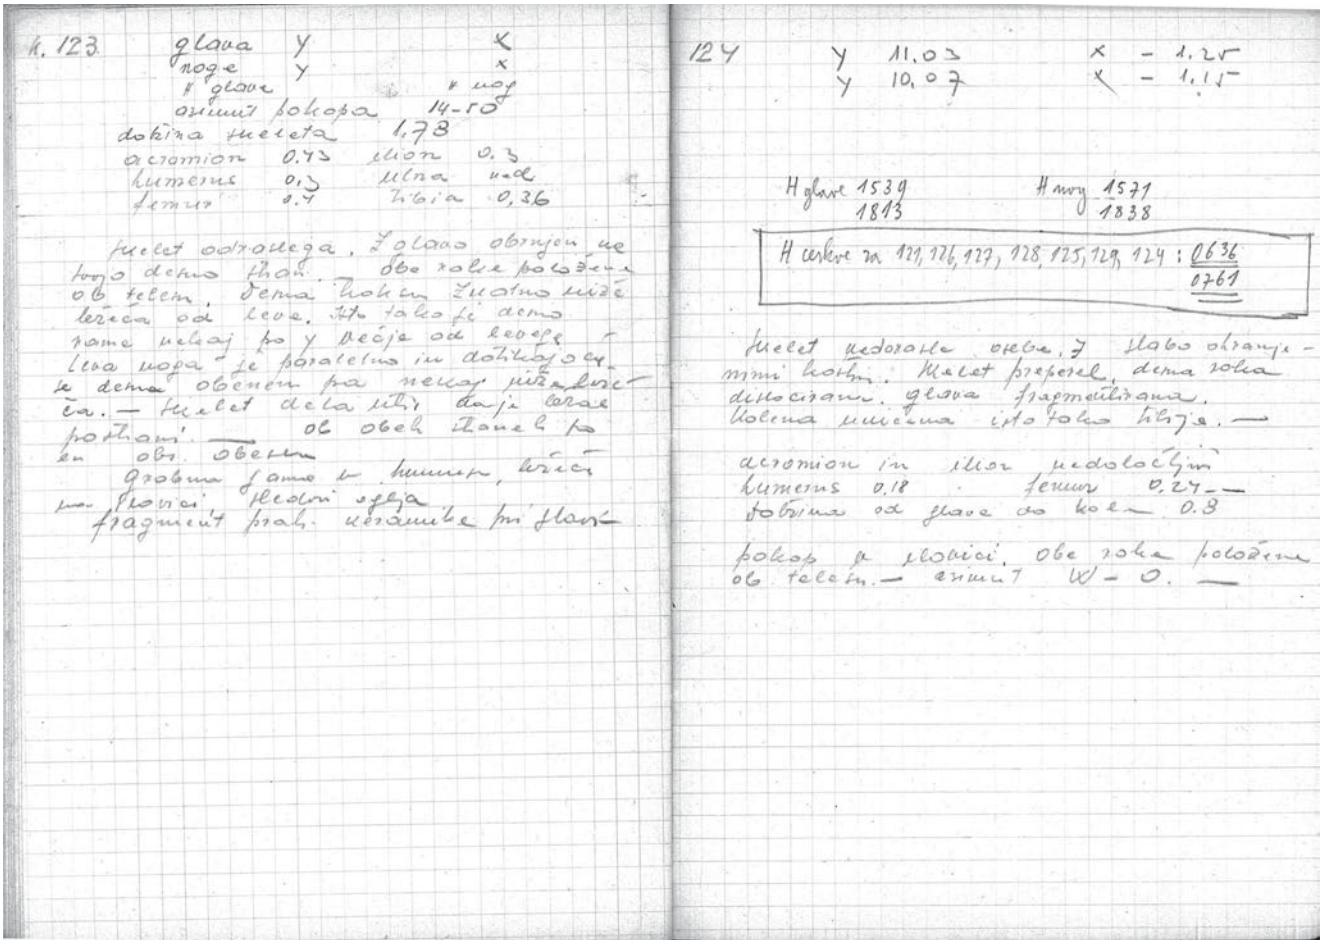 k. 123 glava Y X
noge Y X
H glave H nog
azimut pokopa 14-50
dolžina skeleta 1,78
acromion 0.43 ilion 0.3
humerus 0,3 ulna
femur 0.4 tibia 0,36
skelet odraslega. Z glavo obrnjen na
svojo desno stran. — obe roke položene
ob telesu. Desna znatno niže
ležeča od leve. isto tako je desno
rame nekaj po y večje od levega
leva noga je paralelno in
se desna obenem pa nekaj niže
ča. — skelet dela utis da je ležal
postrani. — ob obeh straneh po
en obr. obesen
Grobna jama v humusu, ležeči
na ilovici sledovi oglja
fragment prah. keramike pri glavi
124 Y 11.03 X - 1.25
Y 10.07 X - 1.15
H glave 1539 H nog 1571
1813 1838
H cerkve za 121, 126, 127, 128, 125, 129, 124 : 0636
0761
skelet nedorasle osebe. Z slabo ohranje-
nimi kostmi. skelet preperel, desna roka
dislocirana. glava fragmentirana.
Kolena uničena isto tako tibije. —
acromion in ilion nedoločljivi
humerus 0,18 femur 0,24 —
dolžina od glave do kolen 0.8
pokop v ilovici. obe roke položene
ob telesu. — azimut W - O. —